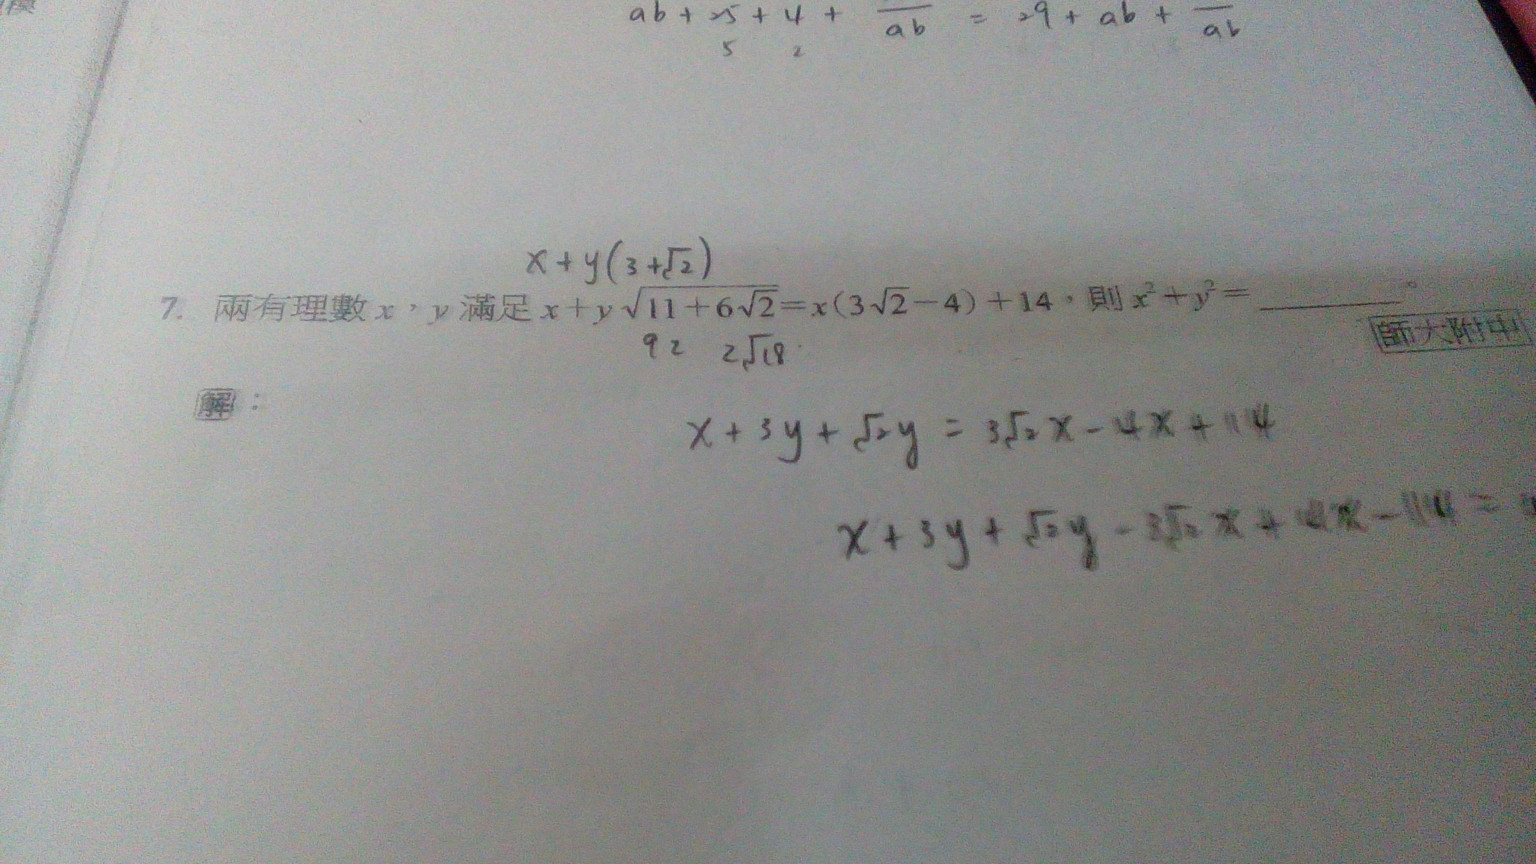 ab + 25 + 4 + — ab = 29 + ab + — ab
5 2
x + y(3+√2)
7. 兩有理數 x，y 滿足 x + y√(11+6√2) = x(3√2−4)+14，則 x²+y²= ________。
9 2 2√18
師大附中
解：
x + 3y + √2y = 3√2x − 4x + 14
x + 3y + √2y − 3√2x + 4x − 14 =